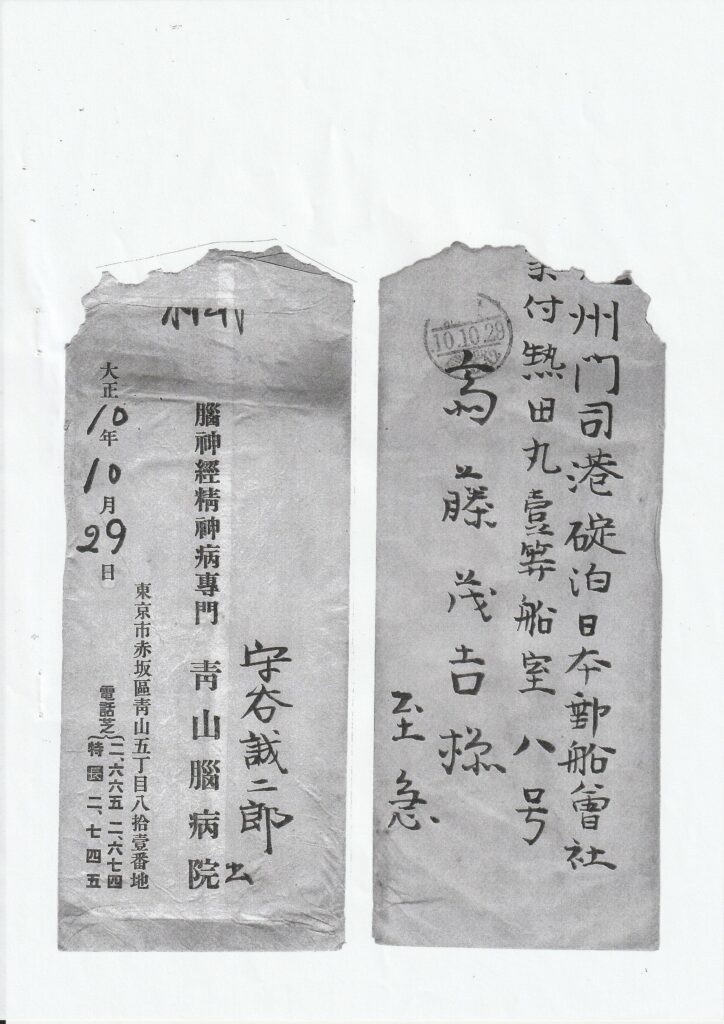 州門司港碇泊日本郵船會社
気付熱田丸壹等船室八号
10.10.29
斎藤茂吉様
至急
守谷誠二郎
出
腦神經精神病專門 靑山腦病院
東京市赤坂區靑山五丁目八拾壹番地
電話芝
二、六六五 二、六七四
特長 二、七四五
大正10年10月29日